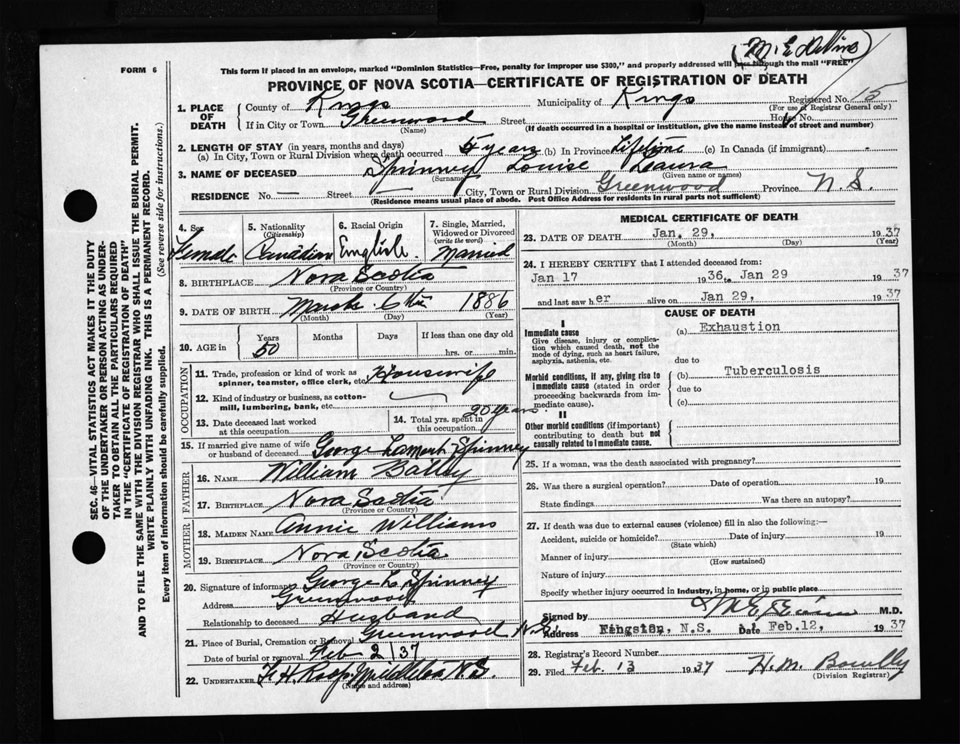 (M. E. Devine)
FORM 6
This form if placed in an envelope, marked "Dominion Statistics—Free, penalty for improper use $300," and properly addressed will pass through the mail "FREE"
PROVINCE OF NOVA SCOTIA—CERTIFICATE OF REGISTRATION OF DEATH
1. PLACE OF DEATH
County of Kings Municipality of Kings Registered No. 15
(For use of Registrar General only)
If in City or Town Greenwood Street House No.
(Name) (If death occurred in a hospital or institution, give the name instead of street and number)
2. LENGTH OF STAY (in years, months and days)
(a) In City, Town or Rural Division where death occurred years (b) In Province Lifetime (c) In Canada (if immigrant) -
3. NAME OF DECEASED Spinney Louise Laura
(Surname) (Given name or names)
RESIDENCE No. — Street — City, Town or Rural Division Greenwood Province N.S.
(Residence means usual place of abode. Post Office Address for residents in rural parts not sufficient)
4. Sex Female
5. Nationality (Citizenship) Canadian
6. Racial Origin English
7. Single, Married, Widowed or Divorced (write the word) Married
8. BIRTHPLACE Nova Scotia
(Province or Country)
9. DATE OF BIRTH March 1886
(Month) (Day) (Year)
10. AGE in Years Months Days If less than one day old
50 hrs. or min.
OCCUPATION
11. Trade, profession or kind of work as spinner, teamster, office clerk, etc. Housewife
12. Kind of industry or business, as cotton-mill, lumbering, bank, etc.
13. Date deceased last worked at this occupation
14. Total yrs. spent in this occupation 20 years
15. If married give name of wife or husband of deceased George Lamert Spinney
FATHER
16. NAME William
17. BIRTHPLACE Nova Scotia
(Province or Country)
MOTHER
18. MAIDEN NAME Annie Williams
19. BIRTHPLACE Nova Scotia
(Province or Country)
20. Signature of informant George L. Spinney
Address Greenwood
Relationship to deceased Husband
21. Place of Burial, Cremation or Removal Greenwood N.S.
Date of burial or removal Feb 2/37
22. UNDERTAKER Middleton N.S.
(Name and address)
MEDICAL CERTIFICATE OF DEATH
23. DATE OF DEATH Jan. 29, 1937
(Month) (Day) (Year)
24. I HEREBY CERTIFY that I attended deceased from:
Jan 17 1936, to Jan 29 1937
and last saw her alive on Jan 29, 1937
CAUSE OF DEATH
I
Immediate cause
Give disease, injury or complication which caused death, not the mode of dying, such as heart failure, asphyxia, asthenia, etc.
(a) Exhaustion
due to
Morbid conditions, if any, giving rise to immediate cause (stated in order proceeding backwards from immediate cause).
(b) Tuberculosis
due to
(c)
II
Other morbid conditions (if important) contributing to death but not causally related to immediate cause.
25. If a woman, was the death associated with pregnancy?
26. Was there a surgical operation? Date of operation 19
State findings Was there an autopsy?
27. If death was due to external causes (violence) fill in also the following:—
Accident, suicide or homicide? Date of injury 19
(State which)
Manner of injury
(How sustained)
Nature of injury
Specify whether injury occurred in industry, in home, or in public place
Signed by M.D.
Address Kingston, N.S. Date Feb.12, 1937
28. Registrar's Record Number
29. Filed Feb. 13 1937 H. M.
(Division Registrar)
SEC. 46—VITAL STATISTICS ACT MAKES IT THE DUTY
OF THE UNDERTAKER OR PERSON ACTING AS UNDERTAKER TO OBTAIN ALL THE PARTICULARS REQUIRED
IN THE "CERTIFICATE OF REGISTRATION OF DEATH"
AND TO FILE THE SAME WITH THE DIVISION REGISTRAR WHO SHALL ISSUE THE BURIAL PERMIT.
WRITE PLAINLY WITH UNFADING INK. THIS IS A PERMANENT RECORD.
Every item of information should be carefully supplied. (See reverse side for instructions.)